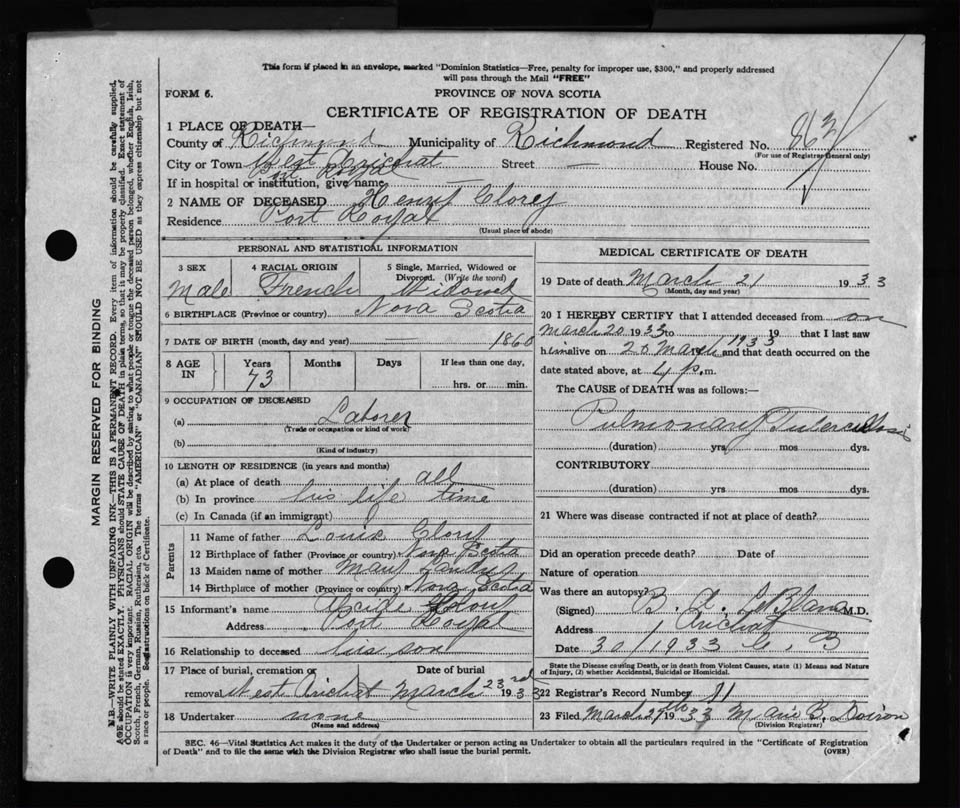 This form if placed in an envelope, marked "Dominion Statistics—Free, penalty for improper use, $300," and properly addressed
will pass through the Mail "FREE"
FORM 6.
PROVINCE OF NOVA SCOTIA
CERTIFICATE OF REGISTRATION OF DEATH
1 PLACE OF DEATH—
County of Richmond Municipality of Richmond Registered No.
(For use of Registrar General only)
City or Town West Arichat Street — House No.
Port Royal
If in hospital or institution, give name —
2 NAME OF DECEASED Henry Clory
Residence Port Royal
(Usual place of abode)
PERSONAL AND STATISTICAL INFORMATION
3 SEX 4 RACIAL ORIGIN 5 Single, Married, Widowed or Divorced. (Write the word)
Male French Widowed
6 BIRTHPLACE (Province or country) Nova Scotia
7 DATE OF BIRTH (month, day and year) — 1860
8 AGE IN Years Months Days If less than one day,
73 hrs. or min.
9 OCCUPATION OF DECEASED
(a) Laborer
(Trade or occupation or kind of work)
(b)
(Kind of industry)
10 LENGTH OF RESIDENCE (in years and months)
(a) At place of death all
(b) In province his life time
(c) In Canada (if an immigrant)
Parents
11 Name of father Louis Clory
12 Birthplace of father (Province or country) Nova Scotia
13 Maiden name of mother Mary
14 Birthplace of mother (Province or country) Nova Scotia
15 Informant's name
Address Port Royal
16 Relationship to deceased his son
17 Place of burial, cremation or removal Date of burial
West Arichat March 23rd 1933
18 Undertaker none
(Name and address)
MEDICAL CERTIFICATE OF DEATH
19 Date of death March 21 1933
(Month, day and year)
20 I HEREBY CERTIFY that I attended deceased from on
March 20 1933 to 19 that I last saw
him alive on 20 March 1933 and that death occurred on the
date stated above, at 4 p.m.
The CAUSE of DEATH was as follows:
Pulmonary Tuberculosis
(duration) yrs mos dys.
CONTRIBUTORY
(duration) yrs mos dys.
21 Where was disease contracted if not at place of death?
Did an operation precede death? Date of
Nature of operation
Was there an autopsy?
(Signed) B. A. LeBlanc M.D.
Address Arichat
Date 30/1933
State the Disease causing Death, or in death from Violent Causes, state (1) Means and Nature
of Injury, (2) whether Accidental, Suicidal or Homicidal.
22 Registrar's Record Number 11
23 Filed March 27th 1933 B. Doiron
(Division Registrar)
SEC. 46—Vital Statistics Act makes it the duty of the Undertaker or person acting as Undertaker to obtain all the particulars required in the "Certificate of Registration
of Death" and to file the same with the Division Registrar who shall issue the burial permit.
(OVER)
MARGIN RESERVED FOR BINDING
N.B.—WRITE PLAINLY WITH UNFADING INK—THIS IS A PERMANENT RECORD. Every item of information should be carefully supplied.
AGE should be stated EXACTLY. PHYSICIANS should STATE CAUSE OF DEATH in plain terms, so that it may be properly classified. Exact statement of
OCCUPATION is very important. RACIAL ORIGIN will be described by stating to what people or tongue the deceased person belonged, whether English, Irish,
Scotch, French, German, Russian, Ruthenian, etc. The terms "AMERICAN" or "CANADIAN" SHOULD NOT BE USED as they express citizenship but not
a race or people. See instructions on back of Certificate.